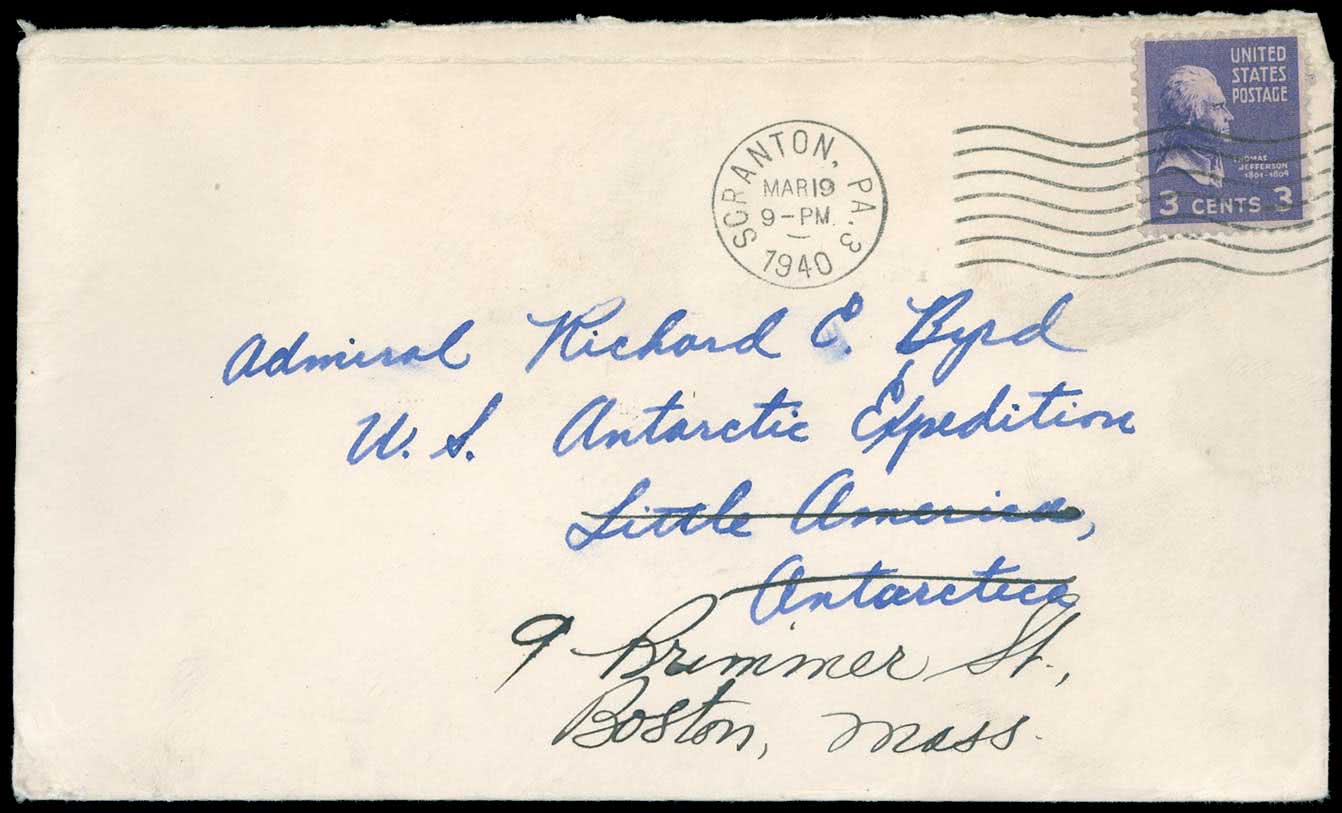 UNITED
STATES
POSTAGE
THOMAS
JEFFERSON
1801-1809
3 CENTS 3
SCRANTON, PA. 3
MAR 19
9-PM
1940
Admiral Richard E. Byrd
U. S. Antarctic Expedition
Little America,
Antarctica
9 Brimmer St.,
Boston, Mass.